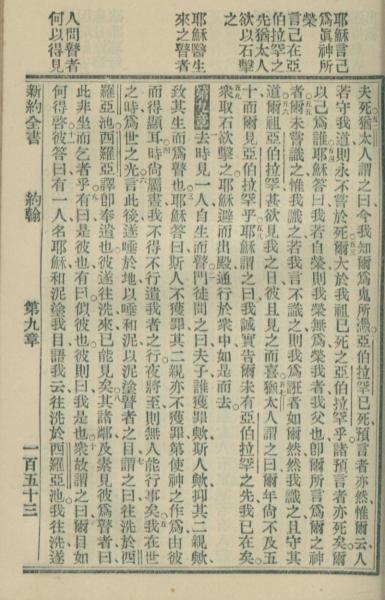 耶穌言己
爲眞神所
榮
言己在亞
伯拉罕之
先猶太人
欲以石擊
之
耶穌醫生
來之瞽者
人問瞽者
何以得見
夫死猶太人謂之曰今我知爾爲鬼所憑亞伯拉罕已死預言者亦然惟爾云人
若守我道則永不嘗於死爾大於我祖已死之亞伯拉罕乎諸預言者亦死矣爾
以己爲誰耶穌答曰我若自榮則我榮無爲榮我者我父也卽爾所言爲爾之神
者爾未嘗識之惟我識之若我言不識之則我爲誑者如爾然然我識之且守其
道爾祖亞伯拉罕甚欲見我之日彼且見之而喜猶太人謂之曰爾年尚不及五
十而爾見亞伯拉罕乎耶穌謂之曰我誠實告爾未有亞伯拉罕之先我已在矣
衆取石欲擊之耶穌避而出殿通行於衆中如是而去
第九章去時見一人自生而瞽門徒問之曰夫子誰獲罪歟斯人歟抑其二親歟
致其生而爲瞽也耶穌答曰斯人不獲罪其二親亦不獲罪第使神之作爲由彼
而得顯耳時尚屬晝我不得不行遣我者之行夜將至則無人能行事矣我在世
之時爲世之光言此後遂唾於地以唾和泥以泥塗瞽者之目謂之曰往洗於西
羅亞池西羅亞譯卽奉遣也彼遂往洗來已能見矣其諸鄰及素見彼爲瞽者曰
此非坐而乞者乎有曰是彼也有曰似彼也彼則曰我是也衆故謂之曰爾目如
何得啓彼答曰有一人名耶穌和泥塗我目語我云往洗於西羅亞池我往洗遂
新約全書 約翰 第九章 一百五十三